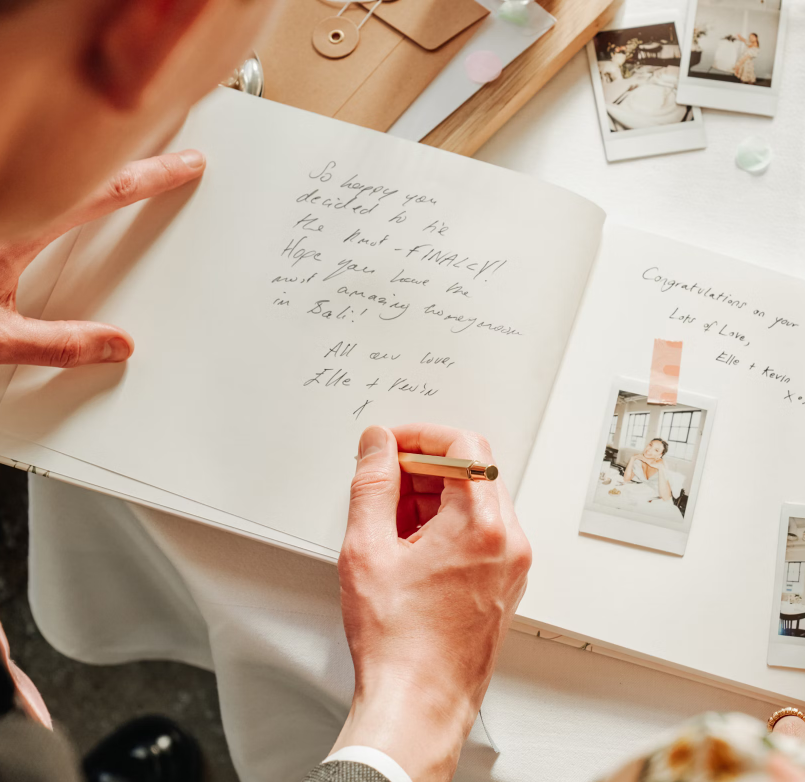 So happy you
decided to tie
the knot - FINALLY!
Hope you have the
most amazing honeymoon
in Bali!
All our love,
Elle + Kevin
X
Congratulations on your
Lots of Love,
Elle + Kevin
X